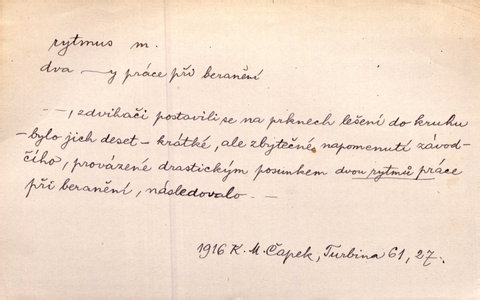 rytmus m.
dva —y práce při beranění
– –, zdvihači postavili se na prknech lešení do kruhu
– bylo jich deset – krátké, ale zbytečné napomenutí závod-
čího, provázené drastickým posunkem dvou rytmů práce
při beranění, následovalo. –
1916 K. M. Čapek, Turbina 61, 27.